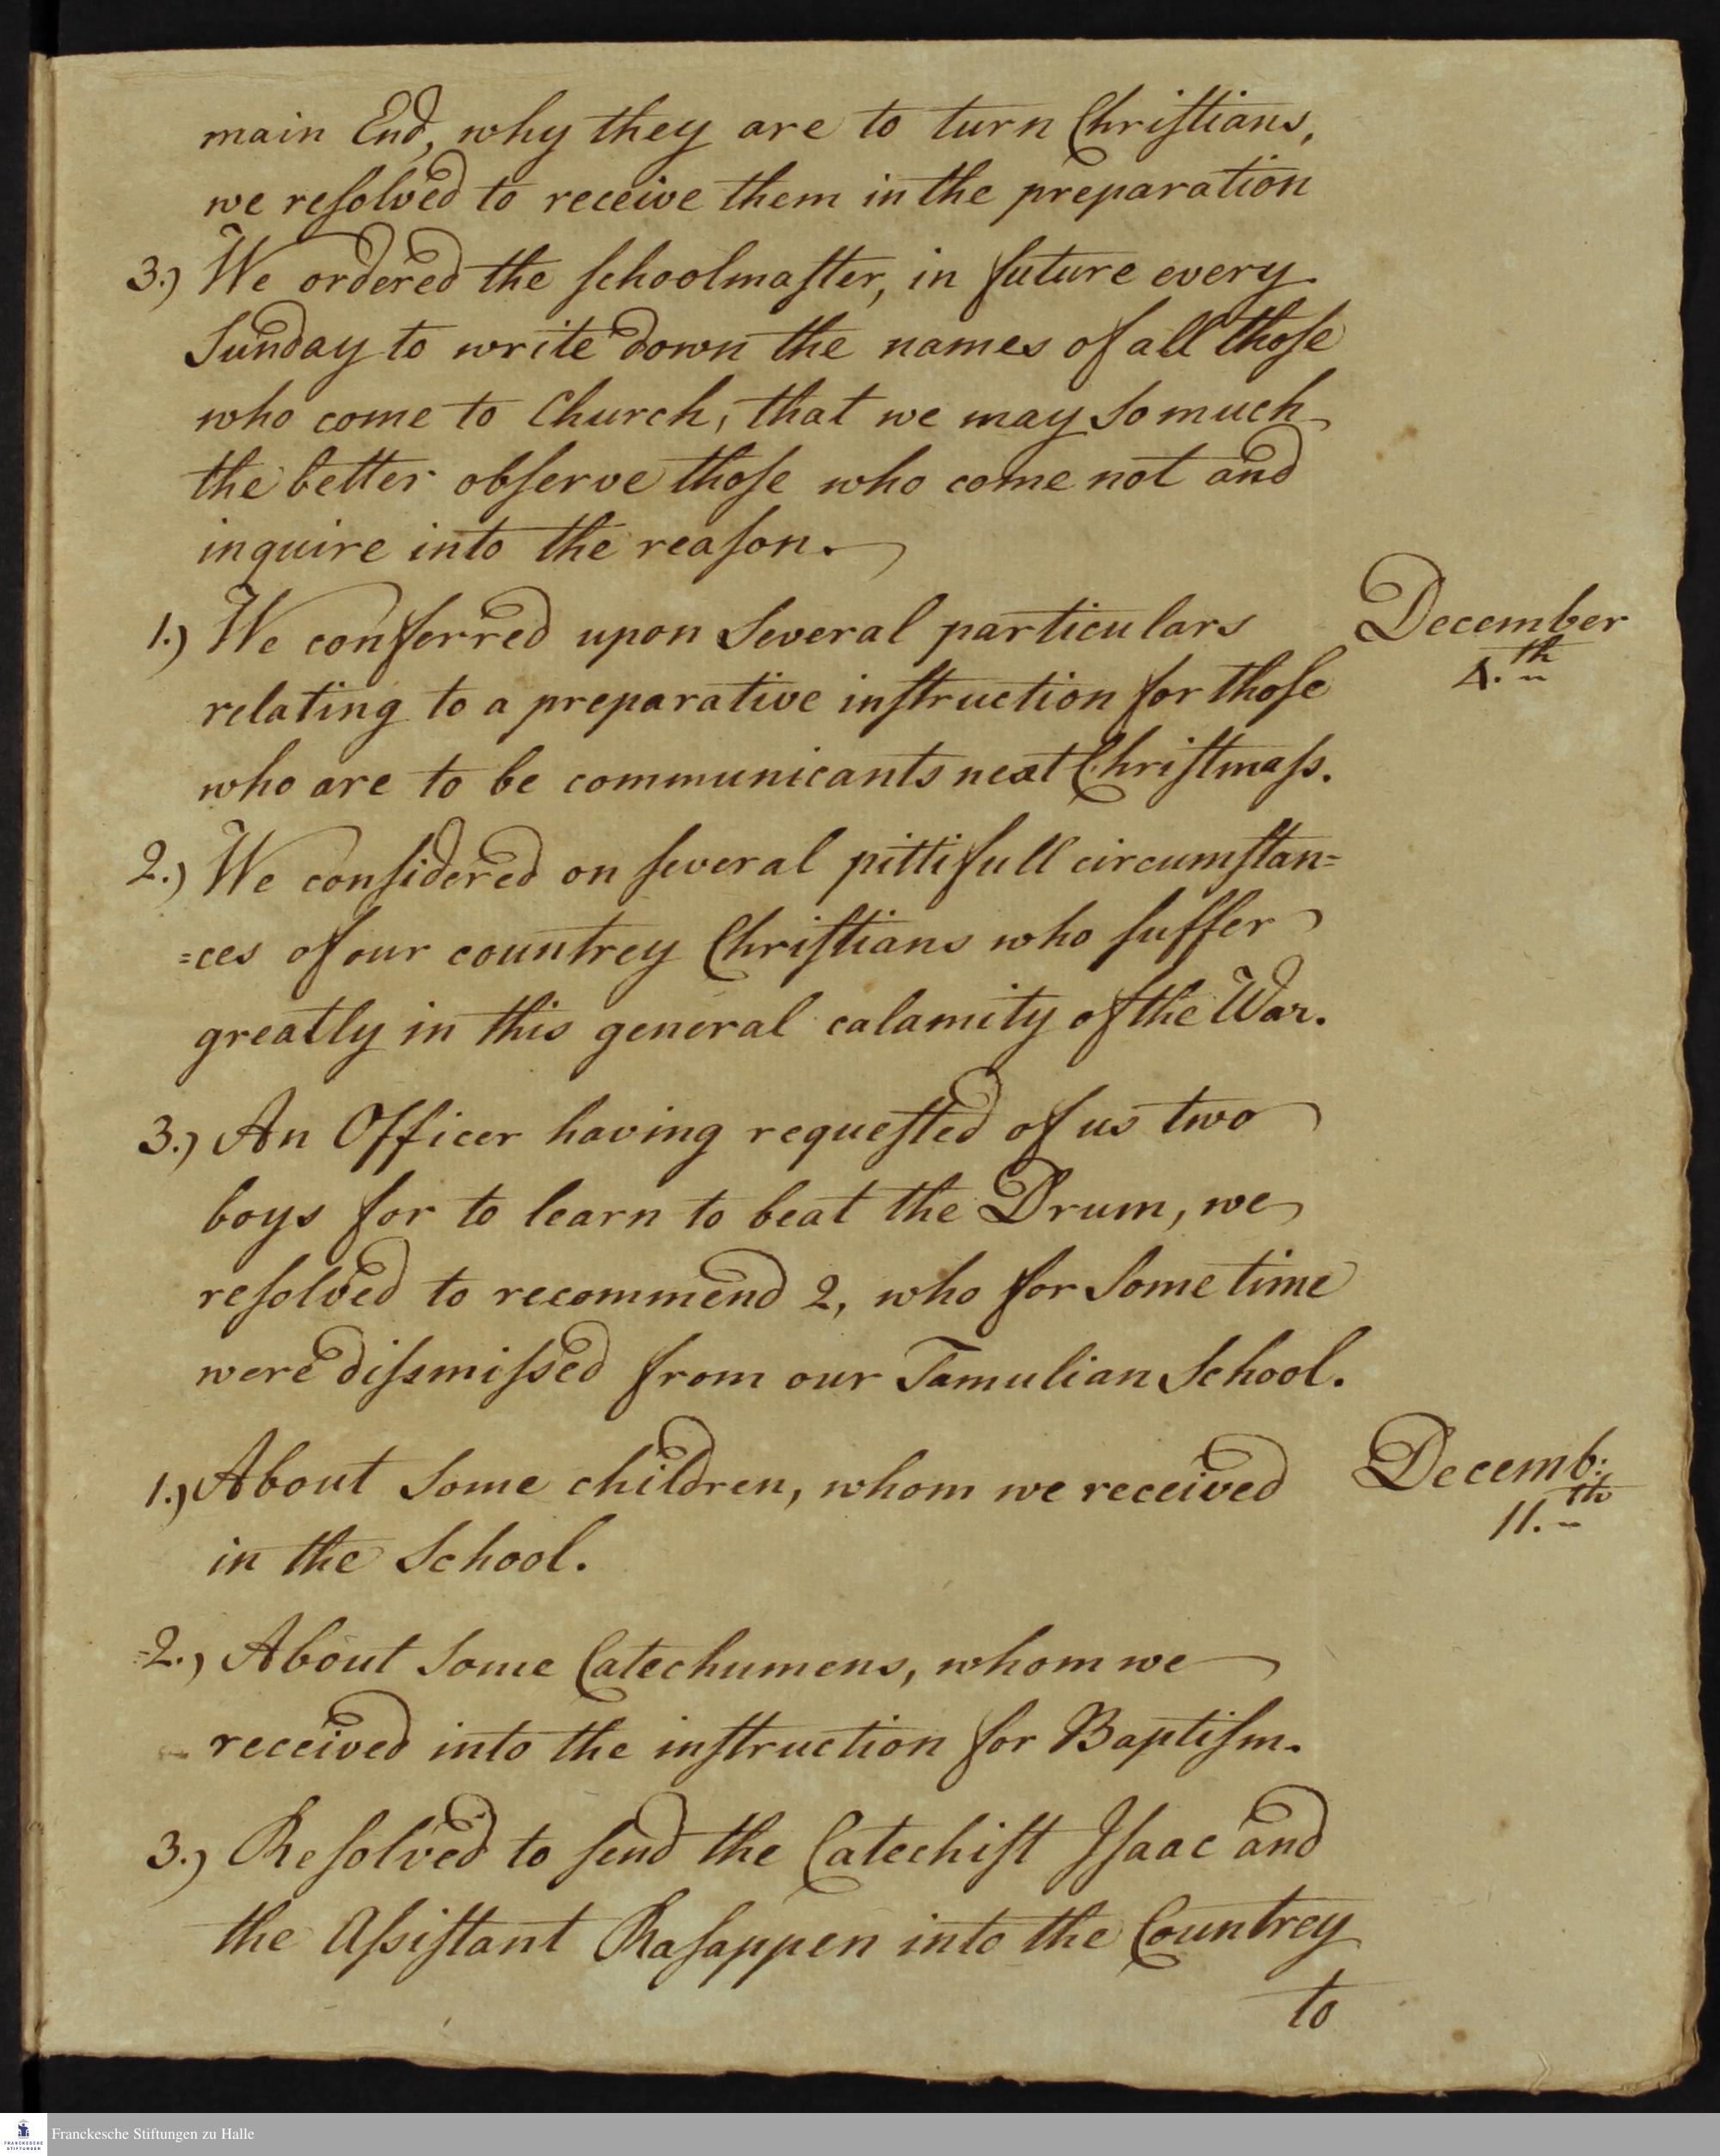 main End, why they are to turn Chriſtians,
we reſolved to receive them in the preparation
3.) We ordered the ſchoolmaſter, in future every
Sunday to write down the names of all thoſe
who come to Church, that we may So much
the better obſerve thoſe who come not and
inquire into the reaſon.
1.) We conferred upon Several particulars
December
4.th
relating to a preparative inſtruction for thoſe
who are to be communicants next Chriſtmaſs.
2.) We conſidered on ſeveral pittifull circumſtan=
=ces of our countrey Chriſtians who ſuffer
greatly in this general calamity of the War.
3.) An Officer having requeſted of us two
boys for to learn to beat the Drum, we
reſolved to recommend 2, who for Some time
were diſsmiſsed from our Tamulian School.
1.) About Some children, whom we received
Decemb:
11.th
in the School.
2.) About Some Catechumens, whom we
received into the inſtruction for Baptiſm.
3.) Reſolved to ſend the Catechiſt Iſaac and
the Aſsiſtant Raſappen into the Countrey
to
FRANCKESCHE
STIFTUNGEN
Franckesche Stiftungen zu Halle